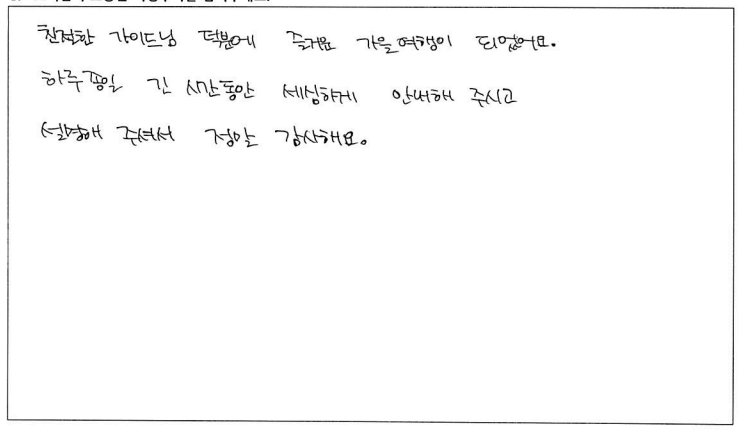 친절한 가이드님 덕분에 즐거운 가을여행이 되었어요.
하루종일 긴 시간동안 세심하게 안내해 주시고
설명해 주셔서 정말 감사해요.